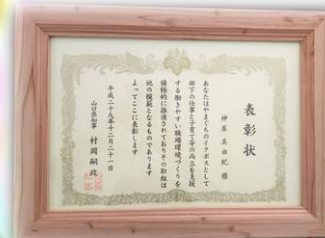 表彰状
神屋 真由紀 様
あなたはやまぐちのイクボスとして
部下の仕事と子育て等の両立を支援
する働きやすい職場環境づくりを
積極的に推進されておりその取組は
他の模範となるものであります
よってここに表彰します
平成二十九年十二月二十一日
山口県知事 村岡嗣政